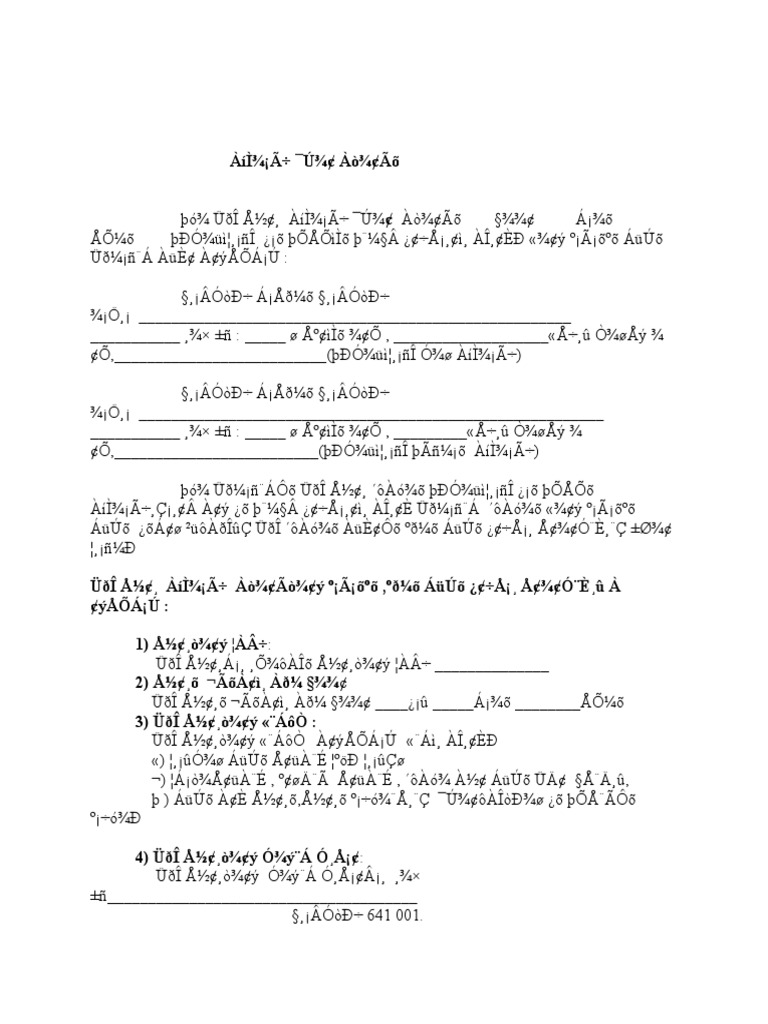 ÀíÌ¾¡Ã÷ ¯Ú¾¢ Àò¾¢Ãõ
þó¾ ÜðÎ Å½¢¸ ÀíÌ¾¡Ã÷ ¯Ú¾¢ Àò¾¢Ãõ §¾¾¢ Á¡¾õ
ÅÕ¼õ þÐÓ¾üì¦¸¡ñÎ ¿¡õ þÕÅÕìÌõ þ¨¼§Â ¿¢÷Å¡¸¢ì¸ ÀÎ¸¢ÈÐ «¾¢ý º¡Ãõºõ ÁüÚõ
Üð¼¡ñ¨Á ÀüÈ¢ À¢ýÅÕÁ¡Ú :
§¸¡ÂÓòÐ÷ Á¡Åð¼õ §¸¡ÂÓòÐ÷
¾¡Ö¸¡ ____________________________________________________
___________ ¸¾× ±ñ : _____ ø Åº¢ìÌõ ¾¢Õ , ______________________«Å÷¸û Ò¾øÅý ¾
¢Õ,__________________________(þÐÓ¾üì¦¸¡ñÎ Ó¾ø ÀíÌ¾¡Ã÷)
§¸¡ÂÓòÐ÷ Á¡Åð¼õ §¸¡ÂÓòÐ÷
¾¡Ö¸¡ ________________________________________________________
___________ ¸¾× ±ñ : _____ ø Åº¢ìÌõ ¾¢Õ , _________«Å÷¸û Ò¾øÅý ¾
¢Õ,_________________________(þÐÓ¾üì¦¸¡ñÎ þÃñ¼¡õ ÀíÌ¾¡Ã÷)
þó¾ Üð¼¡ñ¨ÁÔõ ÜðÎ Å½¢¸ ´ôÀó¾õ þÐÓ¾üì¦¸¡ñÎ ¿¡õ þÕÅÕõ
ÀíÌ¾¡Ã÷¸Ç¡¸Â À¢ý ¿õ þ¨¼§Â ¿¢÷Å¡¸¢ì¸ ÀÎ¸¢È Üð¼¡ñ¨Á ´ôÀó¾õ «¾¢ý º¡Ãõºõ
ÁüÚõ ¿õÁ¢ø ²üôÀðÎûÇ ÜðÎ ´ôÀó¾õ ÀüÈ¢Ôõ ºð¼õ ÁüÚõ ¿¢÷Å¡¸ Å¢¾¢Ó¨È¸¨Ç ±Ø¾¢
¦¸¡ñ¼Ð
ÜðÎ Å½¢¸ ÀíÌ¾¡Ã÷ Àò¾¢Ãò¾¢ý º¡Ãõºõ ,ºð¼õ ÁüÚõ ¿¢÷Å¡¸ Å¢¾¢Ó¨È¸û À
¢ýÅÕÁ¡Ú :
1) Å½¢¸ò¾¢ý ¦ÀÂ÷:
ÜðÎ Å½¢¸Á¡¸ ¸Õ¾ôÀÎõ Å½¢¸ò¾¢ý ¦ÀÂ÷ ______________
2) Å½¢¸õ ¬ÃõÀ¢ì¸ Àð¼ §¾¾¢
ÜðÎ Å½¢¸õ ¬ÃõÀ¢ì¸ Àð¼ §¾¾¢ ____¿¡û _____Á¡¾õ ________ÅÕ¼õ
3) ÜðÎ Å½¢¸ò¾¢ý «¨ÁôÒ :
ÜðÎ Å½¢¸ò¾¢ý «¨ÁôÒ À¢ýÅÕÁ¡Ú «¨Áì¸ ÀÎ¸¢ÈÐ
«) ¦¸¡ûÓ¾ø ÁüÚõ Å¢üÀ¨É ¦ºöÐ ¦¸¡ûÇø
¬) ¦Á¡ò¾Å¢üÀ¨É , º¢øÄ¨Ã Å¢üÀ¨É , ´ôÀó¾ À½¢ ÁüÚõ ÜÄ¢ §Å¨Ä¸û,
þ ) ÁüÚõ À¢È Å½¢¸õ,Å½¢¸õ º¡÷ó¾¨Å¸¨Ç ¯Ú¾¢ôÀÎòÐ¾ø ¿õ þÕÅ¨ÃÔõ
º¡÷ó¾Ð
4) ÜðÎ Å½¢¸ò¾¢ý Ó¾ý¨Á Ó¸Åâ¢:
ÜðÎ Å½¢¸ò¾¢ý Ó¾ý¨Á Ó¸Å¡¢Â¡¸ ¸¾×
±ñ______________________________________
§¸¡ÂÓòÐ÷ 641 001.